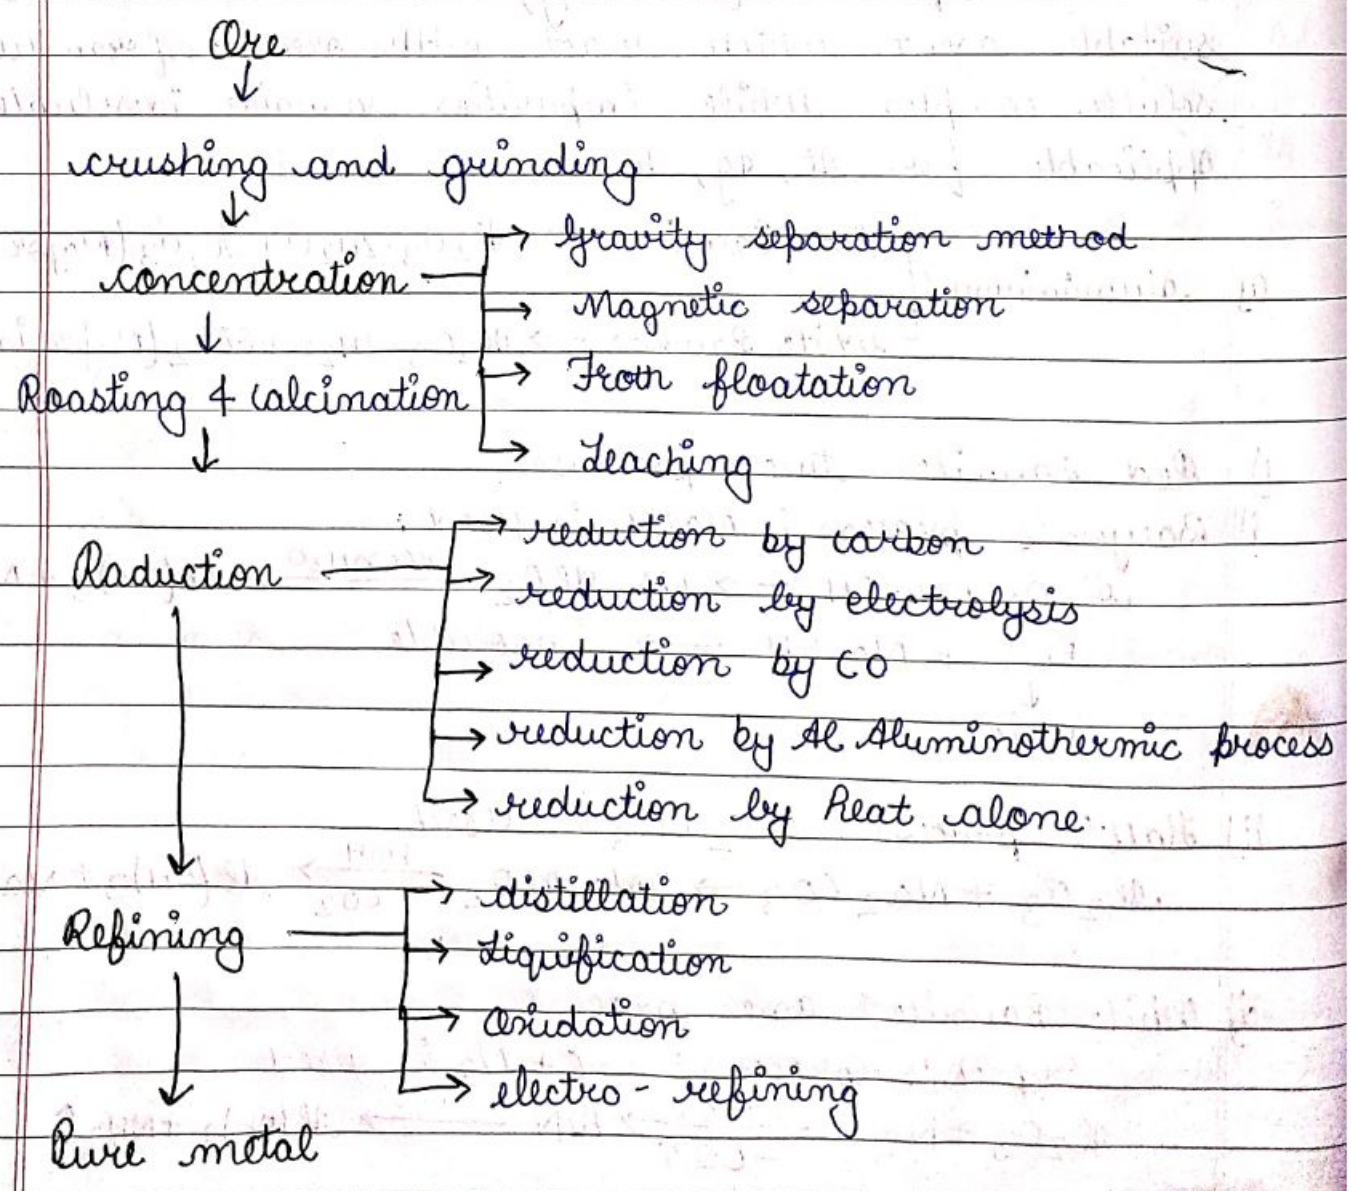 Ore
↓
crushing and grinding
↓
concentration → Gravity separation method
→ Magnetic separation
↓
→ Froth floatation
Roasting & calcination
→ Leaching
↓
→ reduction by carbon
Raduction
→ reduction by electrolysis
→ reduction by CO
→ reduction by Al Aluminothermic process
→ reduction by heat alone
↓
→ distillation
Refining
→ Liquification
→ Oxidation
→ electro - refining
↓
Pure metal